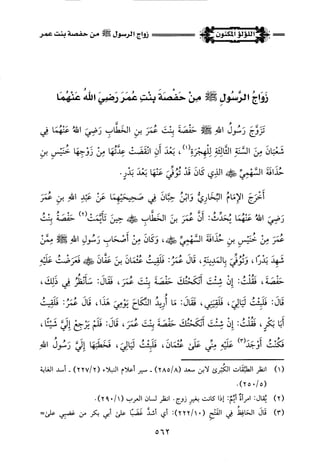 اللؤلؤ المكنون
زواج الرسول ﷺ من حفصة بنت عمر
زَوَاجُ الرَّسُولِ ﷺ مِنْ حَفْصَةَ بِنْتِ عُمَرَ رَضِيَ اللهُ عَنْهُمَا
تَزَوَّجَ رَسُولُ اللهِ ﷺ حَفْصَةَ بِنْتَ عُمَرَ بنِ الخَطَّابِ رَضِيَ اللهُ عَنْهُمَا فِي
شَعْبَانَ مِنَ السَّنَةِ الثَّالِثَةِ لِلْهِجْرَةِ(١)، بَعْدَ أنِ انْقَضَتْ عِدَّتُهَا مِنْ زَوْجِهَا خُنَيْسِ بنِ
حُذَافَةَ السَّهْمِيِّ ﷺ الذِي كَانَ قَدْ تُوُفِّيَ عَنْهَا بَعْدَ بَدْرٍ.
أَخْرَجَ الإِمَامُ البُخَارِيُّ وَابْنُ حِبَّانَ فِي صَحِيحَيْهِمَا عَنْ عَبْدِ اللهِ بنِ عُمَرَ
رَضِيَ اللهُ عَنْهُمَا يُحَدِّثُ: أَنَّ عُمَرَ بنَ الخَطَّابِ ﷺ حِينَ تَأَيَّمَتْ(٢) حَفْصَةُ بِنْتُ
عُمَرَ مِنْ خُنَيْسِ بنِ حُذَافَةَ السَّهْمِيِّ ﷺ، وَكَانَ مِنْ أَصْحَابِ رَسُولِ اللهِ ﷺ مِمَّنْ
شَهِدَ بَدْرًا، وَتُوُفِّيَ بِالمَدِينَةِ، قَالَ عُمَرُ: فَلَقِيتُ عُثْمَانَ بنَ عَفَّانَ ﷺ فَعَرَضْتُ عَلَيْهِ
حَفْصَةَ، فَقُلْتُ: إِنْ شِئْتَ أَنْكَحْتُكَ حَفْصَةَ بِنْتَ عُمَرَ، فَقَالَ: سَأَنْظُرُ فِي ذَلِكَ،
قَالَ: فَلَبِثْتُ لَيَالِيَ، فَلَقِيَنِي، فَقَالَ: مَا أُرِيدُ النِّكَاحَ يَوْمِي هَذَا، قَالَ عُمَرُ: فَلَقِيتُ
أَبَا بَكْرٍ، فَقُلْتُ: إِنْ شِئْتَ أَنْكَحْتُكَ حَفْصَةَ بِنْتَ عُمَرَ، قَالَ: فَلَمْ يَرْجِعْ إِلَيَّ شَيْئًا،
فَكُنْتُ أَوْجَدَ(٣) عَلَيْهِ مِنِّي عَلَى عُثْمَانَ، فَلَبِثْتُ لَيَالِيَ، فَخَطَبَهَا إِلَيَّ رَسُولُ اللهِ
(١) انظر الطَّبَقَات الكُبْرى لابن سعد (٢٨٥/٨) ـ سير أعلام النبلاء (٢٢٧/٢) ـ أسد الغابة
(٢٥٠/٥).
(٢) يُقال: امرأةٌ أيِّمٌ: إذا كانت بغير زوج. انظر لسان العرب (٢٩٠/١).
(٣) قَالَ الحَافِظُ في الفَتْحِ (٢٢٢/١٠): أي أشدَّ غضبًا على أبي بكر من غضبي على=
٥٦٢